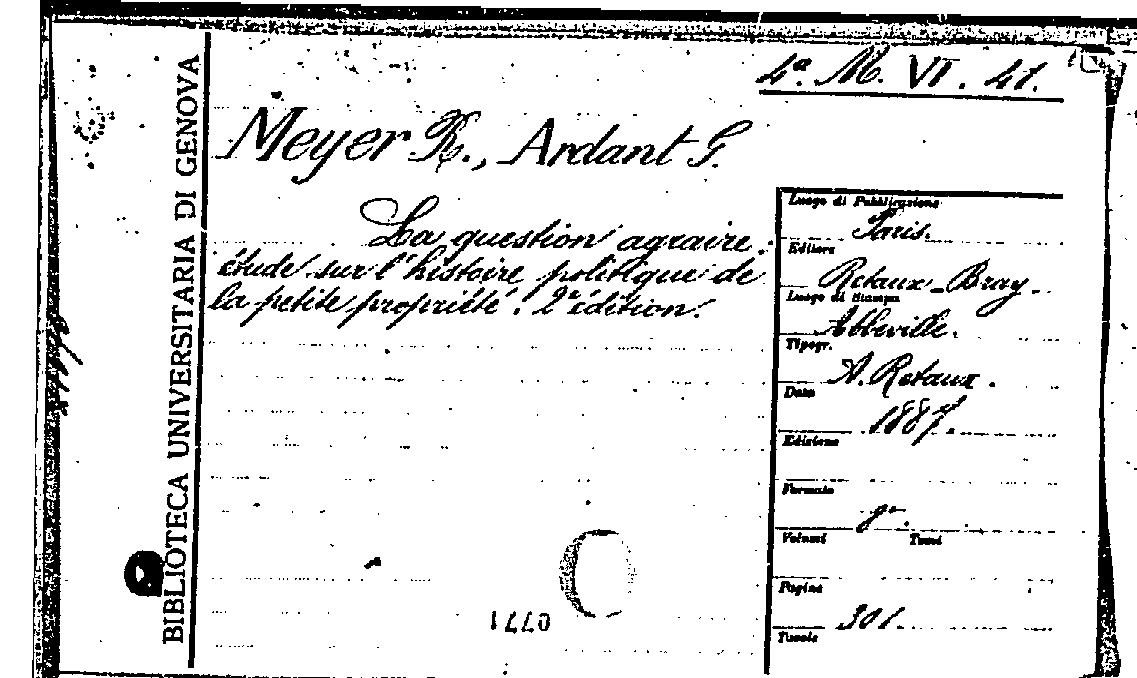 4ª. M. VI. 41.
BIBLIOTECA UNIVERSITARIA DI GENOVA
Meyer R., Ardant G.
La question agraire:
étude sur l'histoire politique de
la petite propriété. 2e édition.
Luogo di Pubblicazione
Paris.
Editore
Retaux-Bray.
Luogo di Stampa
Abbeville.
Tipogr.
A. Retaux.
Data
1887.
Edizione
Formato
8º.
Volumi Tomi
Pagine
301.
Tavole
0771